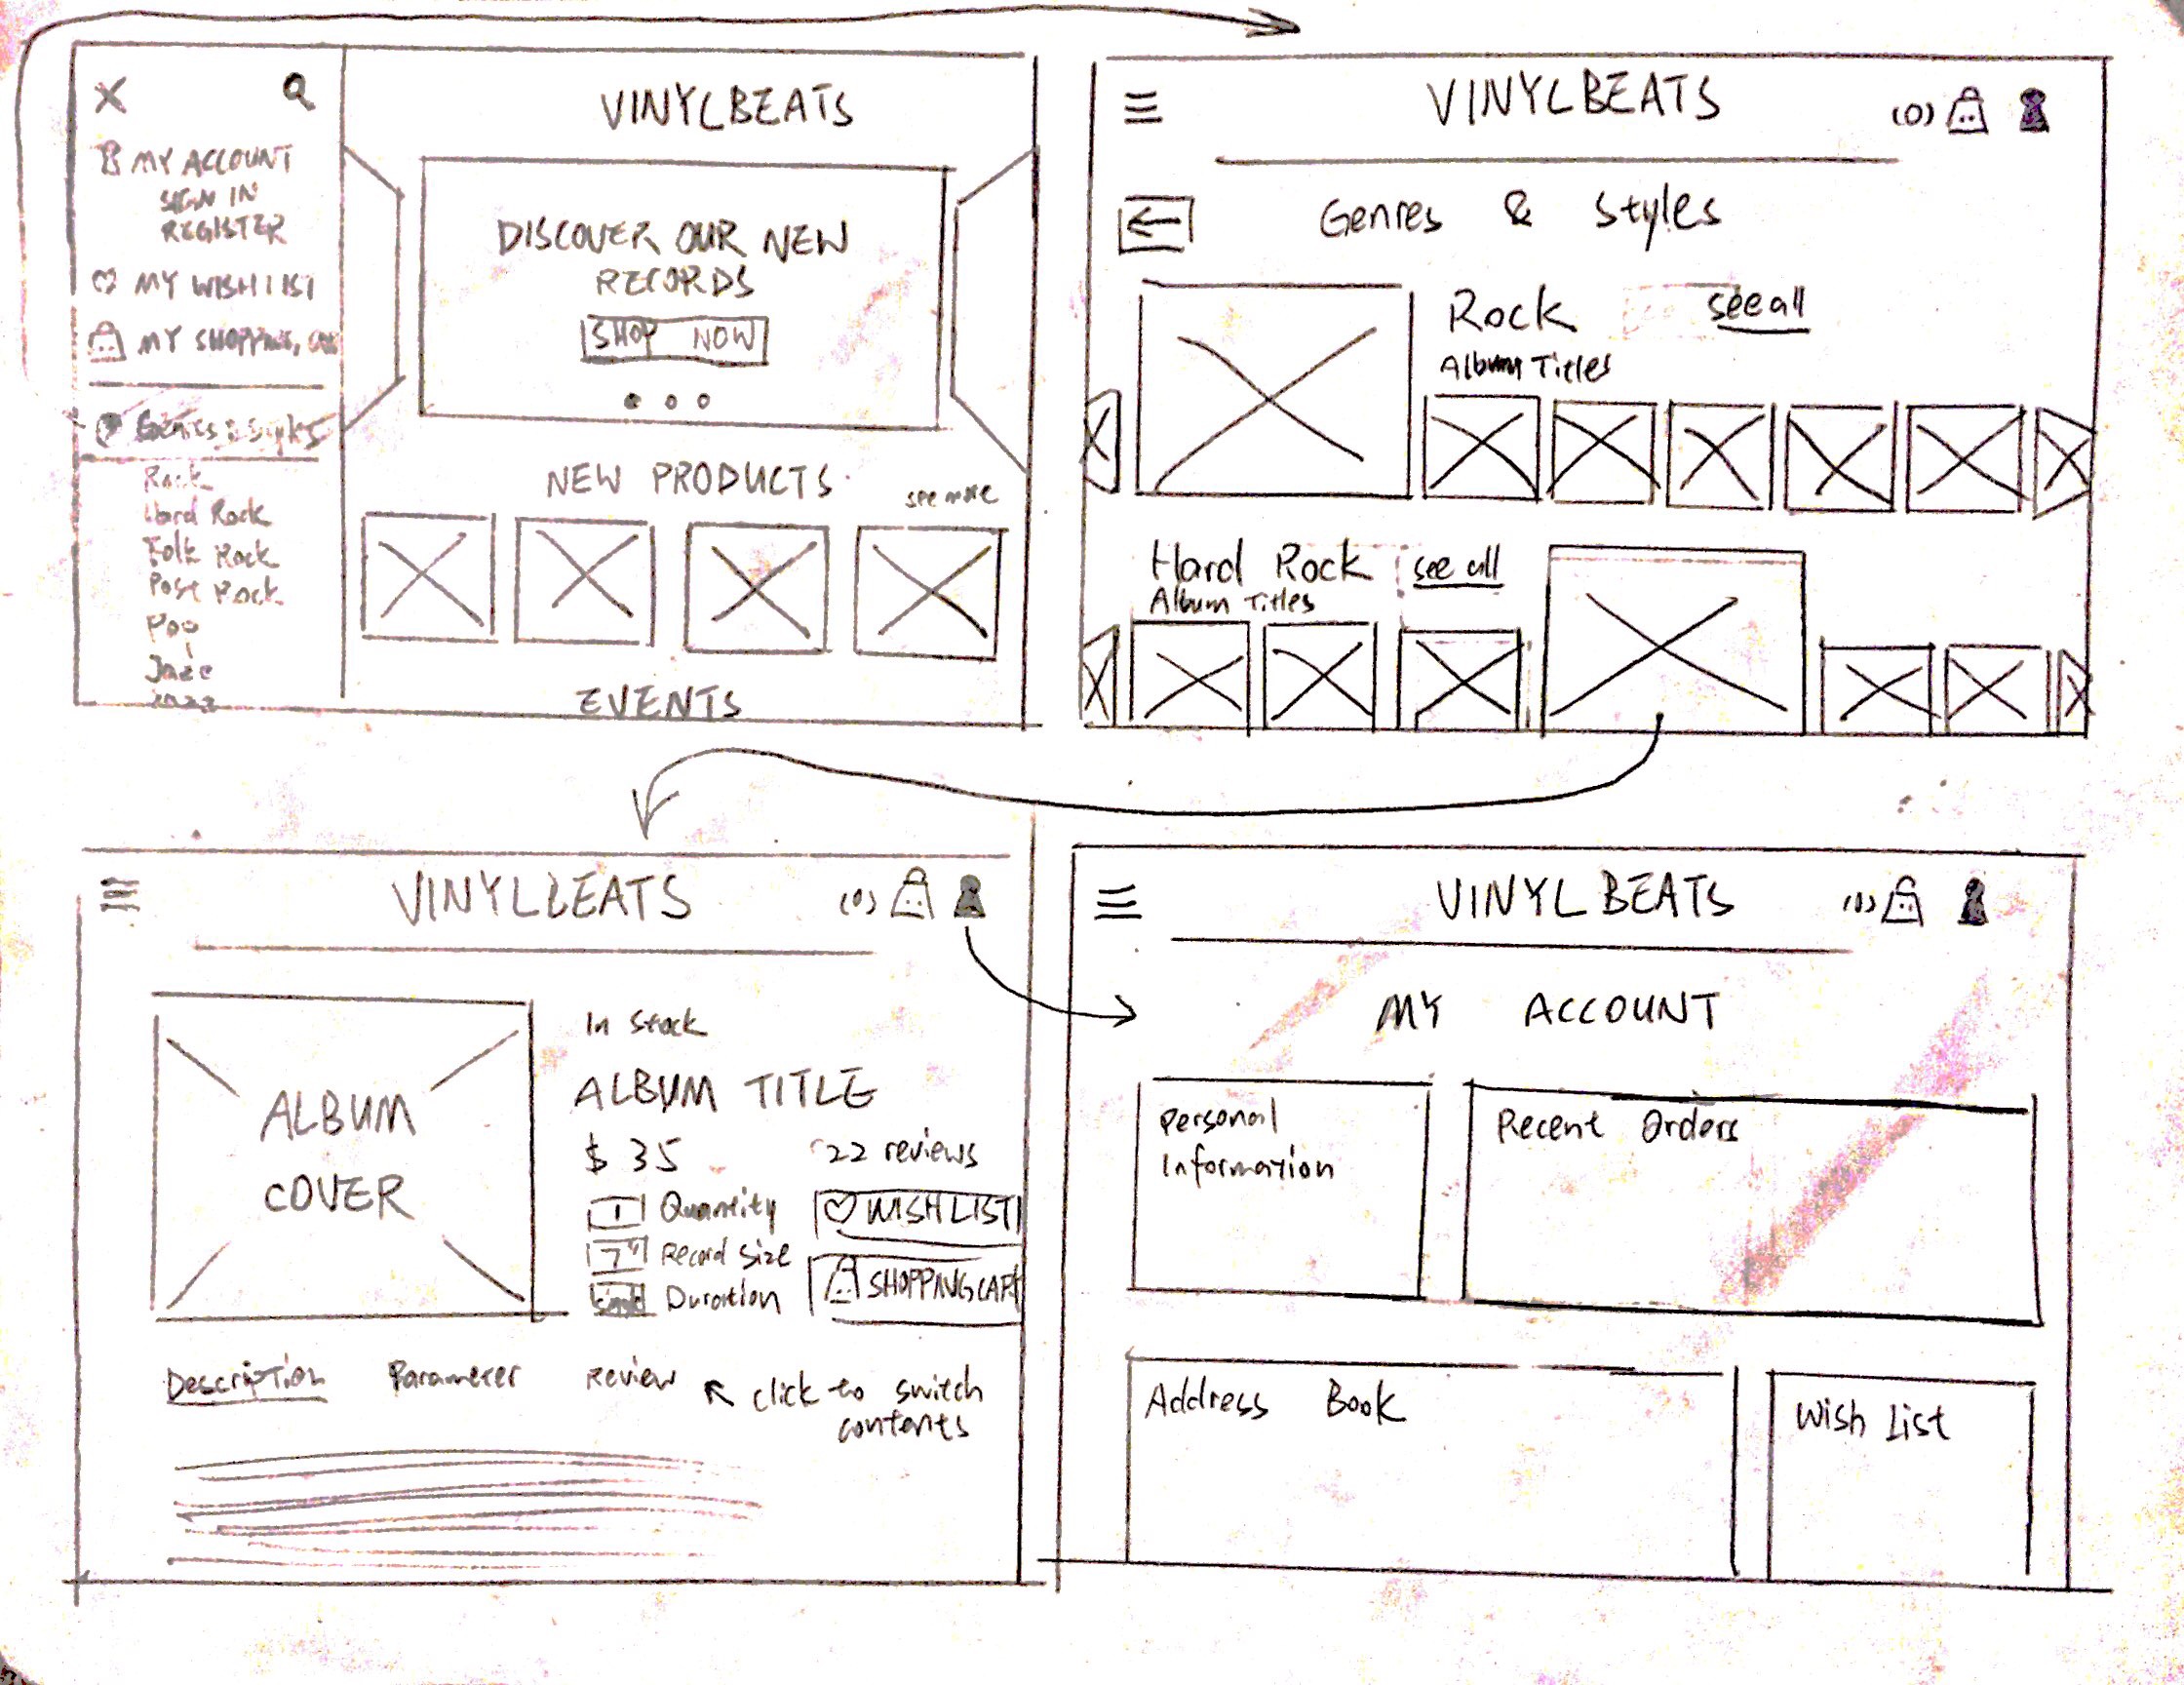 VINYLBEATS
MY ACCOUNT
SIGN IN
REGISTER
MY WISHLIST
MY SHOPPING
Genres & Styles
Rock
Hard Rock
Folk Rock
Post Rock
Pop
DISCOVER OUR NEW
RECORDS
SHOP NOW
NEW PRODUCTS
see more
EVENTS
VINYLBEATS
(0)
Genres & Styles
Rock
see all
Album Titles
Hard Rock
see all
Album Titles
VINYLBEATS
(0)
ALBUM
COVER
In Stock
ALBUM TITLE
$ 35
22 reviews
1 Quantity
WISHLIST
7" Record Size
SHOPPING CART
Duration
Description Parameter Review
click to switch
contents
VINYLBEATS
(0)
MY ACCOUNT
Personal
Information
Recent Orders
Address Book
Wish List